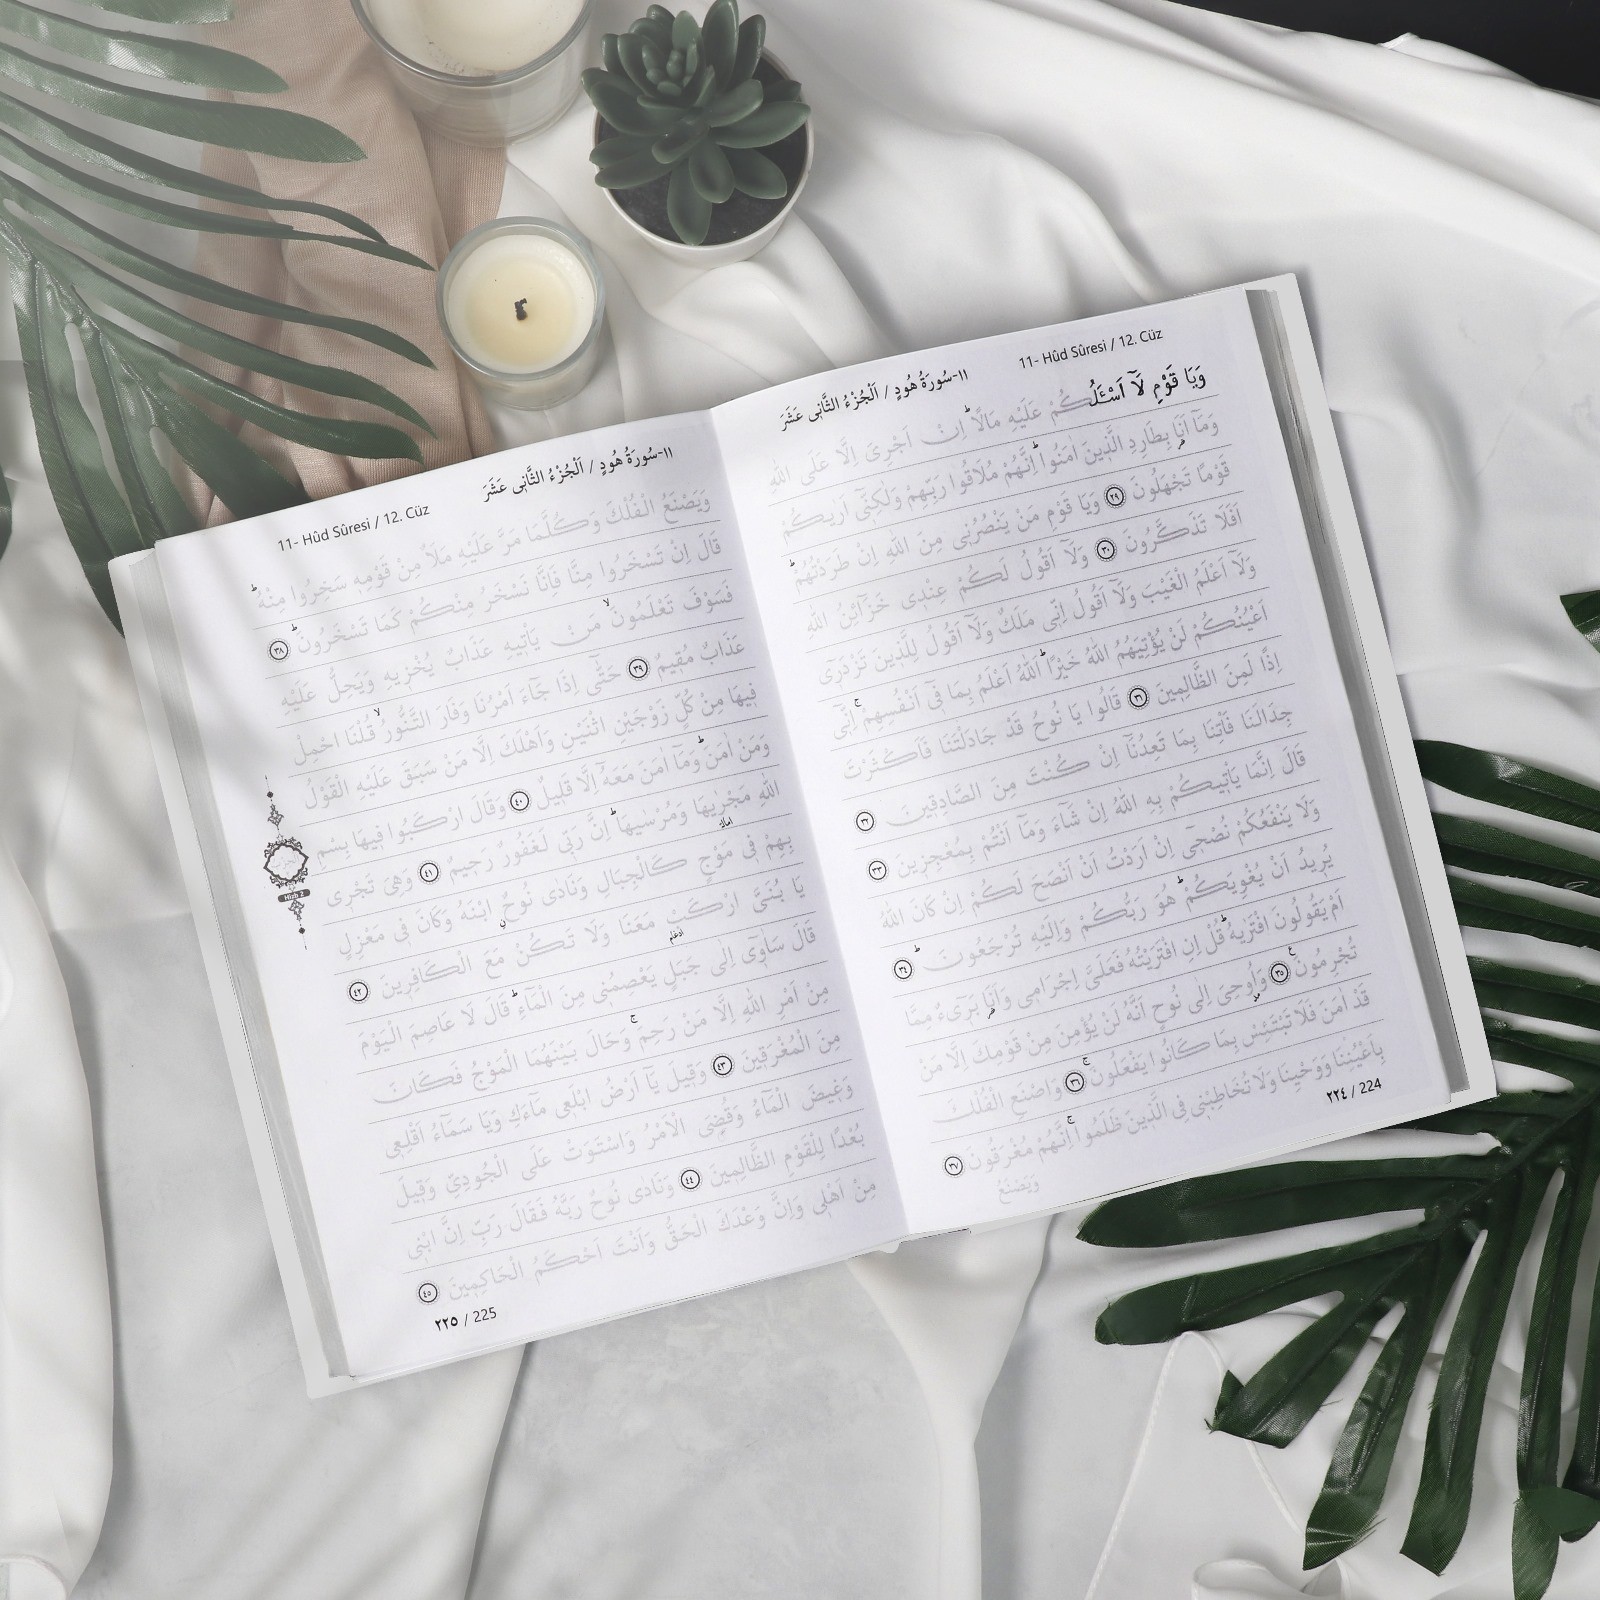 11- Hûd Sûresi / 12. Cüz
١١-سُورَةُ هُودٍ / اَلْجُزْءُ الثَّانِى عَشَرَ
وَيَا قَوْمِ لَٓا اَسْـَٔلُكُمْ عَلَيْهِ مَالًاۜ اِنْ اَجْرِىَ اِلَّا عَلَى اللّٰهِ
وَمَٓا اَنَا۬ بِطَارِدِ الَّذِينَ اٰمَنُواۜ اِنَّهُمْ مُلَاقُوا رَبِّهِمْ وَلٰكِنّٓى اَرٰيكُمْ
قَوْمًا تَجْهَلُونَ ﴿٢٩﴾ وَيَا قَوْمِ مَنْ يَنْصُرُنِى مِنَ اللّٰهِ اِنْ طَرَدْتُهُمْۜ
اَفَلَا تَذَكَّرُونَ ﴿٣٠﴾ وَلَٓا اَقُولُ لَكُمْ عِنْدِى خَزَٓائِنُ اللّٰهِ
وَلَٓا اَعْلَمُ الْغَيْبَ وَلَٓا اَقُولُ اِنِّى مَلَكٌ وَلَٓا اَقُولُ لِلَّذِينَ تَزْدَرٓى
اَعْيُنُكُمْ لَنْ يُؤْتِيَهُمُ اللّٰهُ خَيْرًاۜ اَللّٰهُ اَعْلَمُ بِمَا فٓى اَنْفُسِهِمْۚ اِنّٓى
اِذًا لَمِنَ الظَّالِمِينَ ﴿٣١﴾ قَالُوا يَا نُوحُ قَدْ جَادَلْتَنَا فَاَكْثَرْتَ
جِدَالَنَا فَأْتِنَا بِمَا تَعِدُنَٓا اِنْ كُنْتَ مِنَ الصَّادِقِينَ ﴿٣٢﴾
قَالَ اِنَّمَا يَأْتِيكُمْ بِهِ اللّٰهُ اِنْ شَٓاءَ وَمَٓا اَنْتُمْ بِمُعْجِزِينَ ﴿٣٣﴾
وَلَا يَنْفَعُكُمْ نُصْحٓى اِنْ اَرَدْتُ اَنْ اَنْصَحَ لَكُمْ اِنْ كَانَ اللّٰهُ
يُرِيدُ اَنْ يُغْوِيَكُمْۜ هُوَ رَبُّكُمْ وَاِلَيْهِ تُرْجَعُونَۜ ﴿٣٤﴾
اَمْ يَقُولُونَ افْتَرٰيهُۜ قُلْ اِنِ افْتَرَيْتُهُ فَعَلَىَّ اِجْرَامِى وَاَنَا۬ بَرٓىءٌ مِمَّا
تُجْرِمُونَ۟ ﴿٣٥﴾ وَاُو۫حِىَ اِلٰى نُوحٍ اَنَّهُ لَنْ يُؤْمِنَ مِنْ قَوْمِكَ اِلَّا مَنْ
قَدْ اٰمَنَ فَلَا تَبْتَئِسْ بِمَا كَانُوا يَفْعَلُونَۚ ﴿٣٦﴾ وَاصْنَعِ الْفُلْكَ
بِاَعْيُنِنَا وَوَحْيِنَا وَلَا تُخَاطِبْنِى فِى الَّذِينَ ظَلَمُواۚ اِنَّهُمْ مُغْرَقُونَ ﴿٣٧﴾
وَيَصْنَعُ
٢٢٤ / 224
١١-سُورَةُ هُودٍ / اَلْجُزْءُ الثَّانِى عَشَرَ
11- Hûd Sûresi / 12. Cüz
وَيَصْنَعُ الْفُلْكَ وَكُلَّمَا مَرَّ عَلَيْهِ مَلَاٌ مِنْ قَوْمِهِ سَخِرُوا مِنْهُۜ
قَالَ اِنْ تَسْخَرُوا مِنَّا فَاِنَّا نَسْخَرُ مِنْكُمْ كَمَا تَسْخَرُونَۜ ﴿٣٨﴾
فَسَوْفَ تَعْلَمُونَۙ مَنْ يَأْتِيهِ عَذَابٌ يُخْزِيهِ وَيَحِلُّ عَلَيْهِ
عَذَابٌ مُقِيمٌ ﴿٣٩﴾ حَتّٰٓى اِذَا جَٓاءَ اَمْرُنَا وَفَارَ التَّنُّورُۙ قُلْنَا احْمِلْ
فِيهَا مِنْ كُلٍّ زَوْجَيْنِ اثْنَيْنِ وَاَهْلَكَ اِلَّا مَنْ سَبَقَ عَلَيْهِ الْقَوْلُ
وَمَنْ اٰمَنَۜ وَمَٓا اٰمَنَ مَعَهُٓ اِلَّا قَلِيلٌ ﴿٤٠﴾ وَقَالَ ارْكَبُوا فِيهَا بِسْمِ
اللّٰهِ مَجْرٰۭيهَا وَمُرْسٰيهَاۜ اِنَّ رَبِّى لَغَفُورٌ رَحِيمٌ ﴿٤١﴾ وَهِىَ تَجْرِى
بِهِمْ فِى مَوْجٍ كَالْجِبَالِ وَنَادٰى نُوحٌ ابْنَهُ وَكَانَ فِى مَعْزِلٍ
يَا بُنَىَّ ارْكَبْ مَعَنَا وَلَا تَكُنْ مَعَ الْكَافِرِينَ ﴿٤٢﴾
قَالَ سَاٰوٓى اِلٰى جَبَلٍ يَعْصِمُنِى مِنَ الْمَٓاءِۜ قَالَ لَا عَاصِمَ الْيَوْمَ
مِنْ اَمْرِ اللّٰهِ اِلَّا مَنْ رَحِمَۚ وَحَالَ بَيْنَهُمَا الْمَوْجُ فَكَانَ
مِنَ الْمُغْرَقِينَ ﴿٤٣﴾ وَقِيلَ يَٓا اَرْضُ ابْلَعِى مَٓاءَكِ وَيَا سَمَٓاءُ اَقْلِعِى
وَغِيضَ الْمَٓاءُ وَقُضِىَ الْاَمْرُ وَاسْتَوَتْ عَلَى الْجُودِىِّ وَقِيلَ
بُعْدًا لِلْقَوْمِ الظَّالِمِينَ ﴿٤٤﴾ وَنَادٰى نُوحٌ رَبَّهُ فَقَالَ رَبِّ اِنَّ ابْنِى
مِنْ اَهْلِى وَاِنَّ وَعْدَكَ الْحَقُّ وَاَنْتَ اَحْكَمُ الْحَاكِمِينَ ﴿٤٥﴾
Hizb 2
٢٢٥ / 225